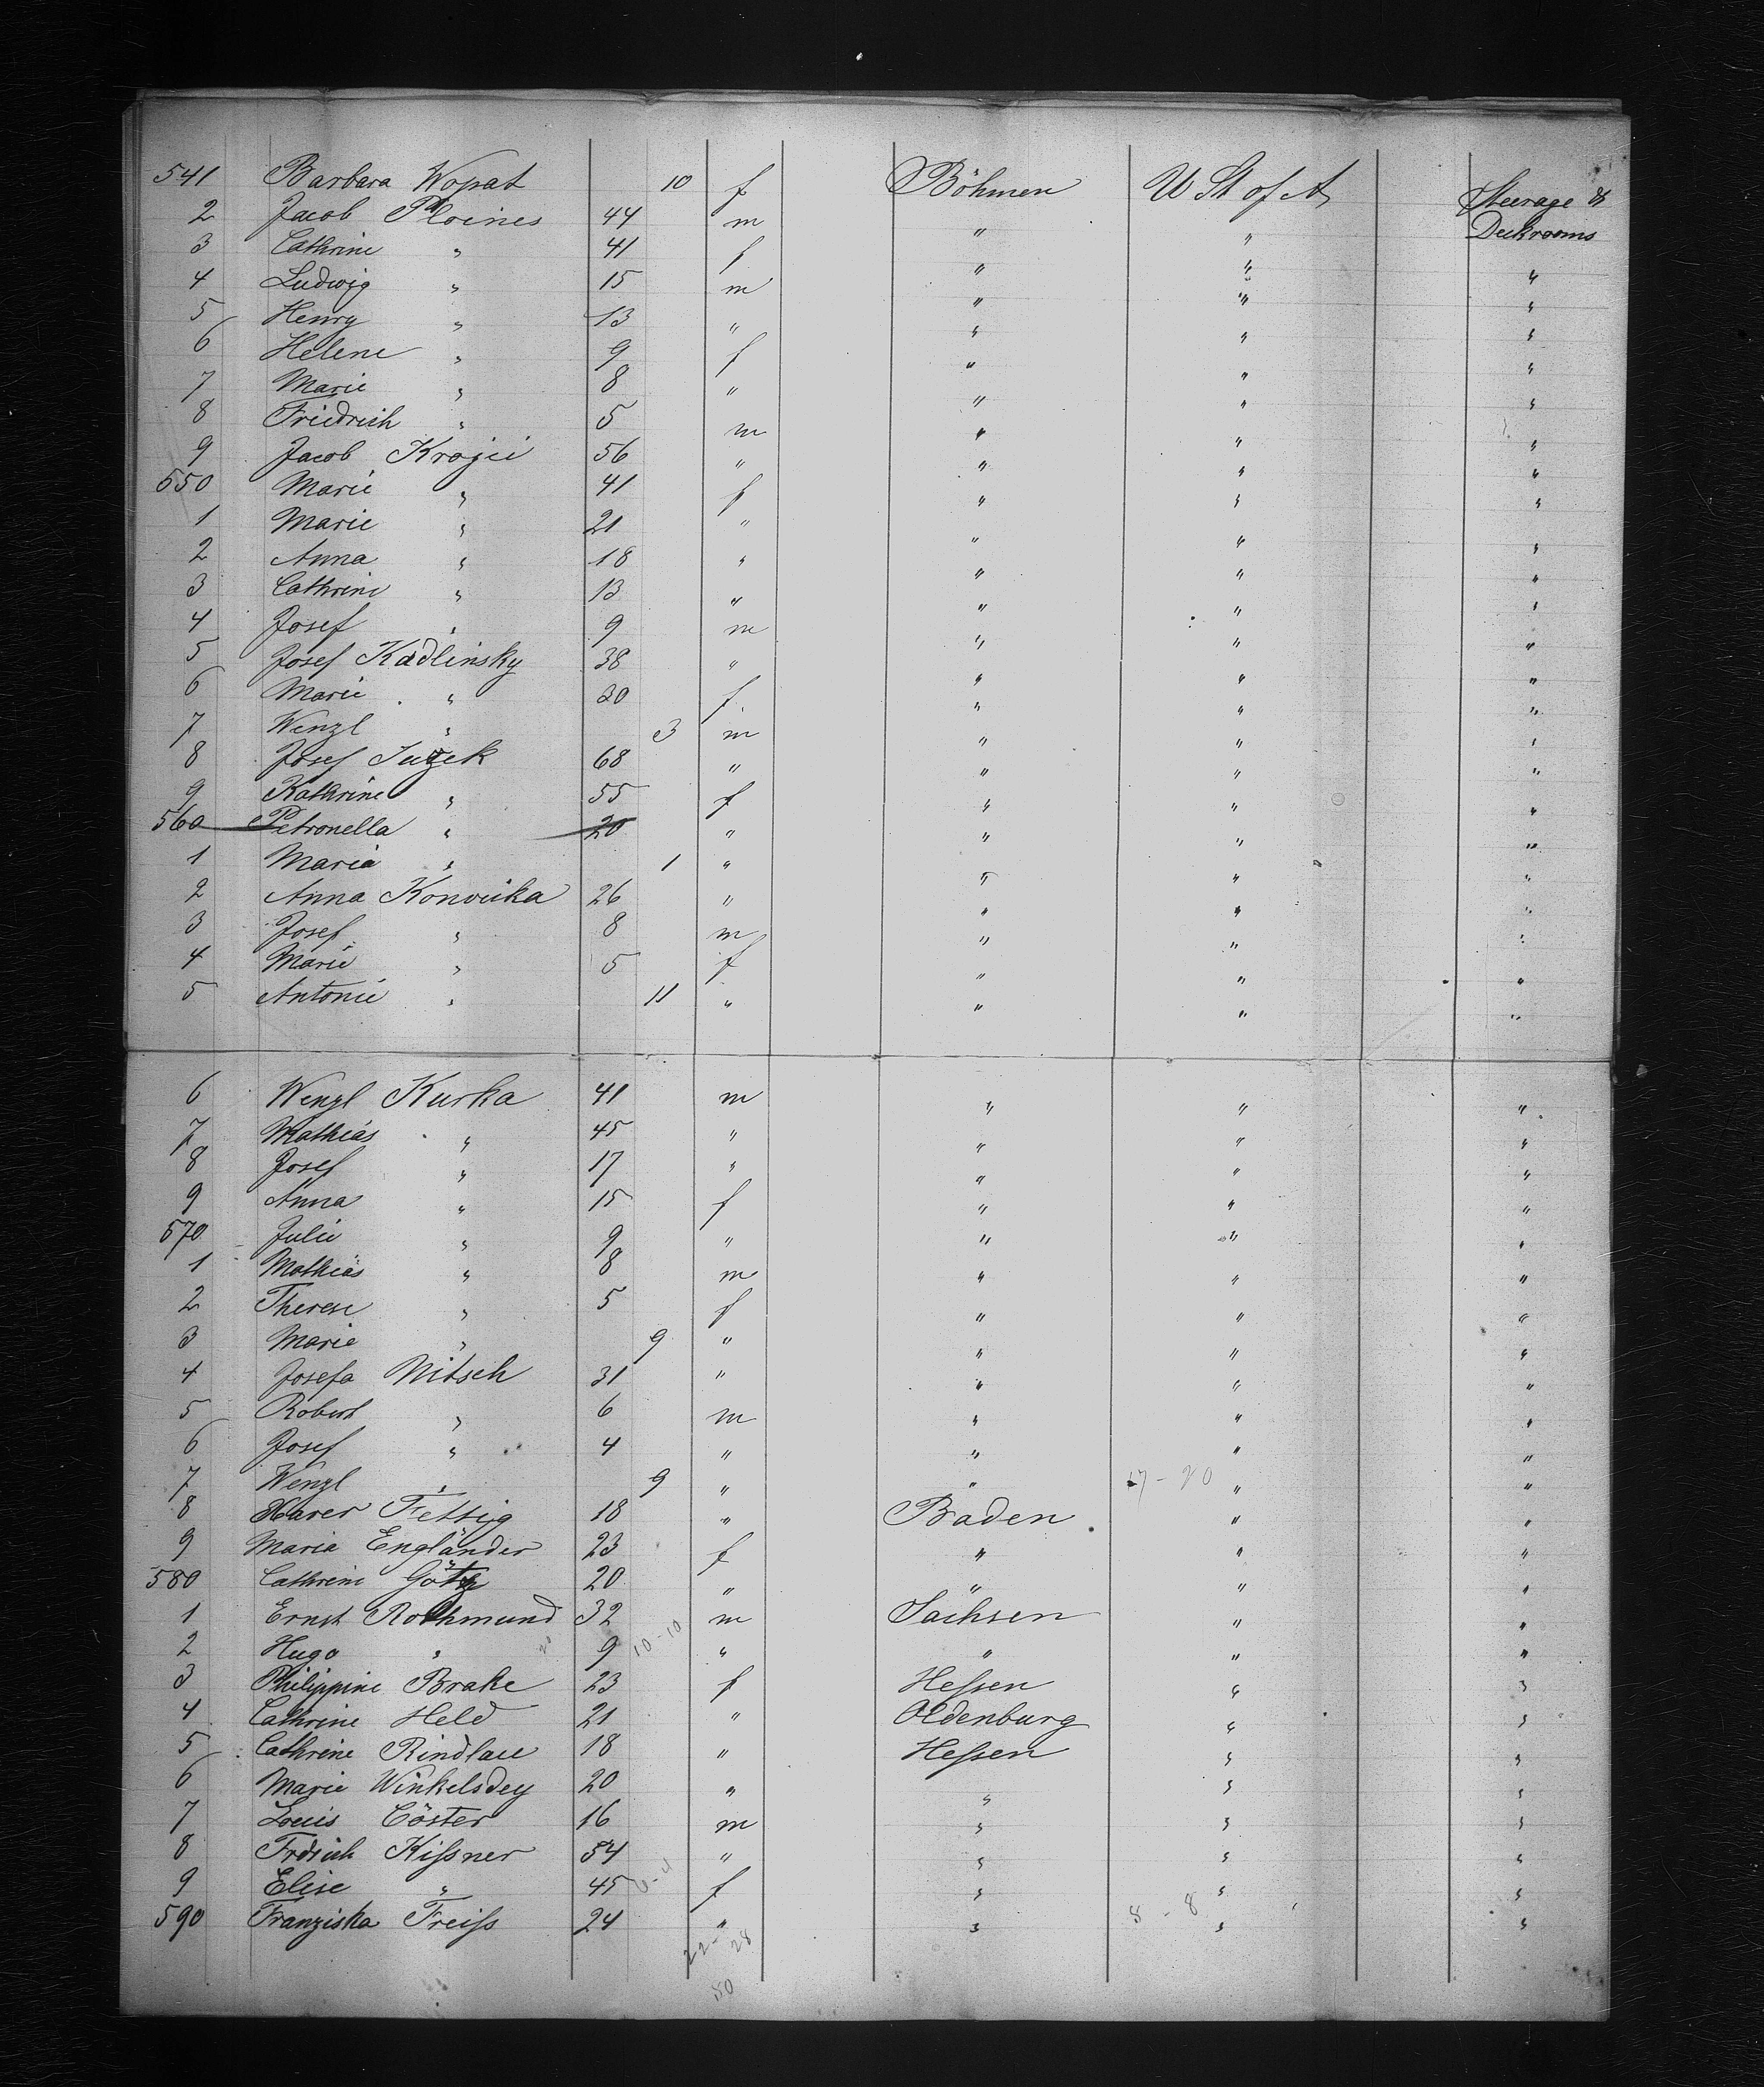 541 Barbara Wopat 10 f Böhmen U St of A Steerage &
2 Jacob Ploines 44 m " " Deckrooms
3 Cathrine " 41 f " " "
4 Ludwig " 15 m " " "
5 Henry " 13 " " " "
6 Helene " 9 f " " "
7 Marie " 8 " " " "
8 Friedrich " 5 m " " "
9 Jacob Krajii 56 " " " "
550 Marie " 41 f " " "
1 Marie " 21 " " " "
2 Anna " 18 " " " "
3 Cathrine " 13 " " " "
4 Josef " 9 m " " "
5 Josef Kadlinsky 38 " " " "
6 Marie " 20 f " " "
7 Wenzl " 3 m " " "
8 Josef 68 " " " "
9 Kathrine " 55 f " " "
560 Petronella " 20 " " " "
1 Maria " 1 " " " "
2 Anna Konvicka 26 " " " "
3 Josef " 8 m " " "
4 Marie " 5 f " " "
5 Antonie " 11 " " " "
6 Wenzl Kurka 41 m " " "
7 Mathias " 45 " " " "
8 Josef " 17 " " " "
9 Anna " 15 f " " "
570 Julie " 9 " " " "
1 Mathias " 8 m " " "
2 Therese " 5 f " " "
3 Marie " 9 " " " "
4 Josefa Nitsch 31 " " " "
5 Robert " 6 m " " "
6 Josef " 4 " " " "
7 Wenzl " 9 " " 17-20 " "
8 Xaver Fettig 18 " Baden " "
9 Maria Engländer 23 f " " "
580 Cathrine Götz 20 " " " "
1 Ernst Rothmund 32 m Sachsen " "
2 Hugo " 9 10-10 " " " "
3 Philippine Brake 23 f Heſsen " "
4 Cathrine Held 21 " Oldenburg " "
5 Cathrine Rindlau 18 " Heſsen " "
6 Marie Winkelsdey 20 " " " "
7 Louis Cöster 16 m " " "
8 Frdrich Kiſsner 54 " " " "
9 Elise " 45 f " " "
590 Franziska Freiſs 24 " " 8-8 " "
22-28
50